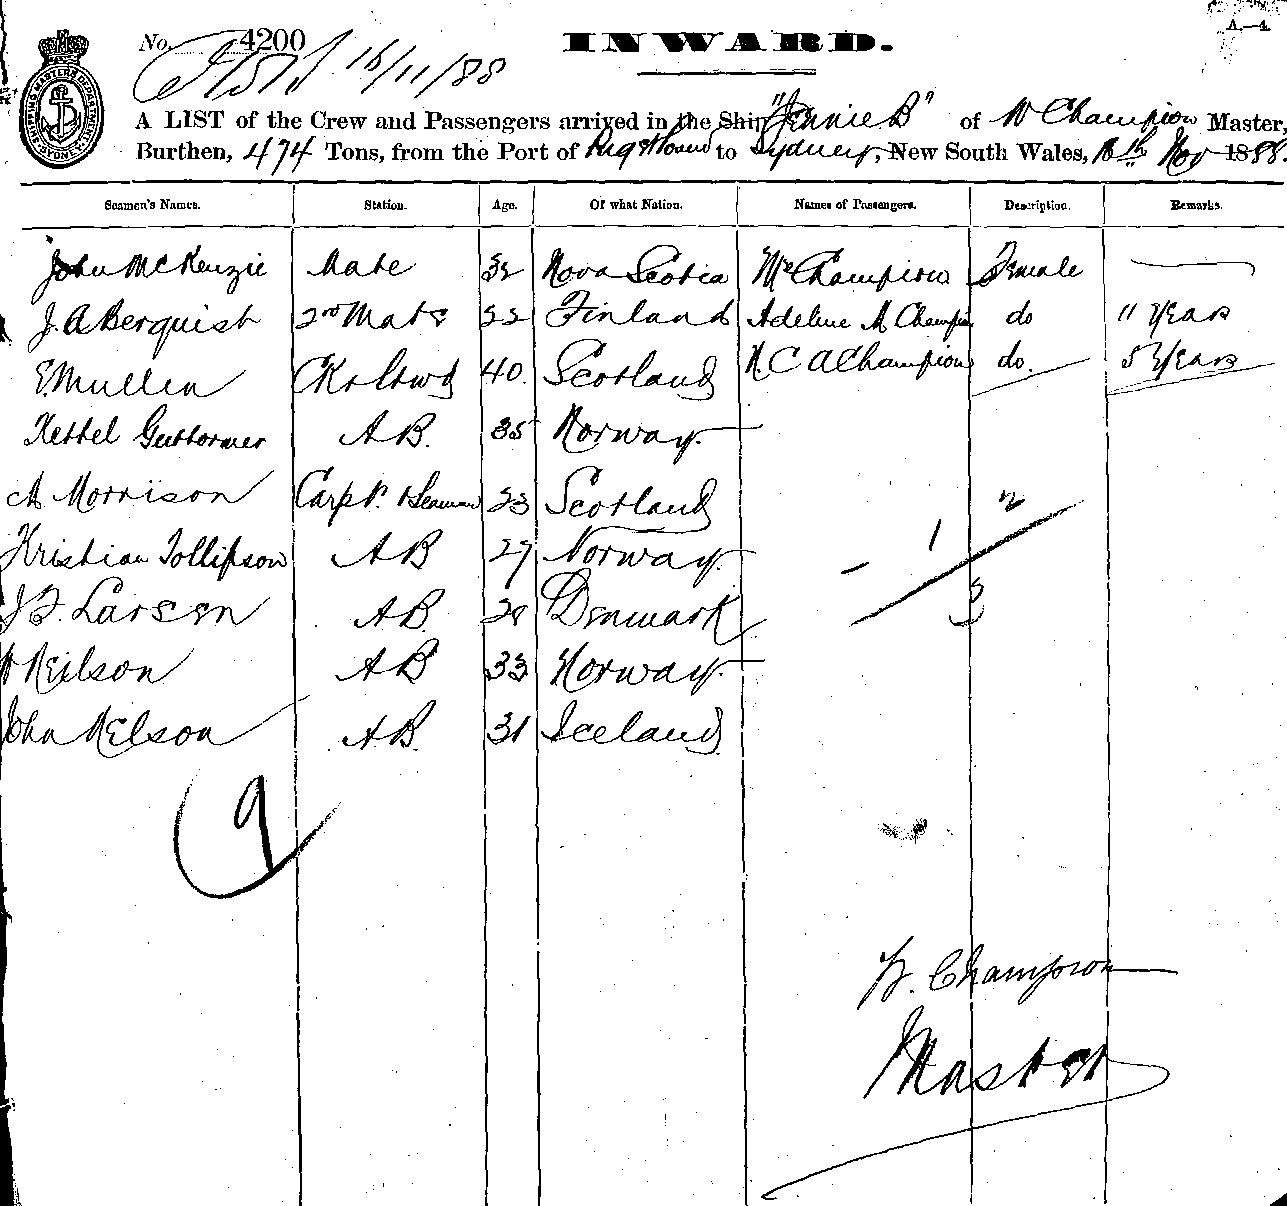 No. 4200
INWARD.
A.—4.
16/11/88
A LIST of the Crew and Passengers arrived in the Ship "Jennie B" of W Champion Master,
Burthen, 474 Tons, from the Port of Puget Sound to Sydney, New South Wales, 16th Nov 1888.
Seamen's Names. Station. Age. Of what Nation. Names of Passengers. Description. Remarks.
John McKenzie Mate 32 Nova Scotia Mrs Champion Female
J. A Berquist 2nd Mate 22 Finland Adeline M Champion do 11 Years
E. Mullen Ck & Stwd 40 Scotland A. C A Champion do. 5 Years
Kettel Guttormer AB. 35 Norway
M Morrison Carpr. & Seaman 23 Scotland
2
Kristian Tollipson AB 27 Norway
– 1
3
J F. Larsen AB. 28 Denmark
W Neilson AB 33 Norway
John Nelson AB. 31 Iceland
9
W. Champion
Master
SHIPPING MASTERS DEPARTMENT SYDNEY